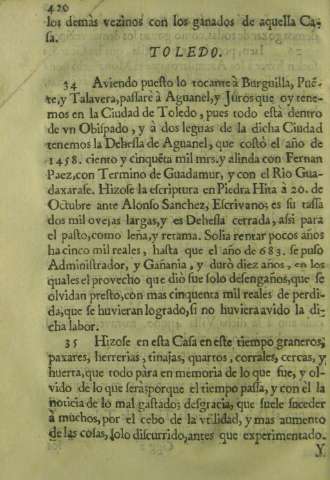 420
los demàs vezinos con los ganados de aquella Ca-
sa.
TOLEDO.
34 Aviendo puesto lo tocante à Burguilla, Puẽ-
te, y Talavera, passarè à Aguanel, y Juros que oy tene-
mos en la Ciudad de Toledo, pues todo està dentro
de vn Obispado, y à dos leguas de la dicha Ciudad
tenemos la Dehessa de Aguanel, que costò el año de
1458. ciento y cinquẽta mil mrs. y alinda con Fernan
Paez, con Termino de Guadamur, y con el Rio Gua-
daxarase. Hizose la escriptura en Piedra Hita à 20. de
Octubre ante Alonso Sanchez, Escrivano; es su tassa
dos mil ovejas largas, y es Dehessa cerrada, assi para
el pasto, como leña, y retama. Solia rentar pocos años
ha cinco mil reales, hasta que el año de 683. se puso
Administrador, y Gañania, y durò diez años, en los
quales el provecho que diò fue solo desengaños, que se
olvidan presto, con mas cinquenta mil reales de perdi-
da, que se huvieran logrado, si no huviera avido la di-
cha labor.
35 Hizose en esta Casa en este tiempo graneros,
paxares, herrerias, tinajas, quartos, corrales, cercas, y
huerta, que todo pàra en memoria de lo que fue, y ol-
vido de lo que serà; porque el tiempo passa, y con èl la
noticia de lo mal gastado; desgracia, que suele suceder
à muchos, por el cebo de la vtilidad, y mas aumento
de las cosas, solo discurrido, antes que experimentado.
Y